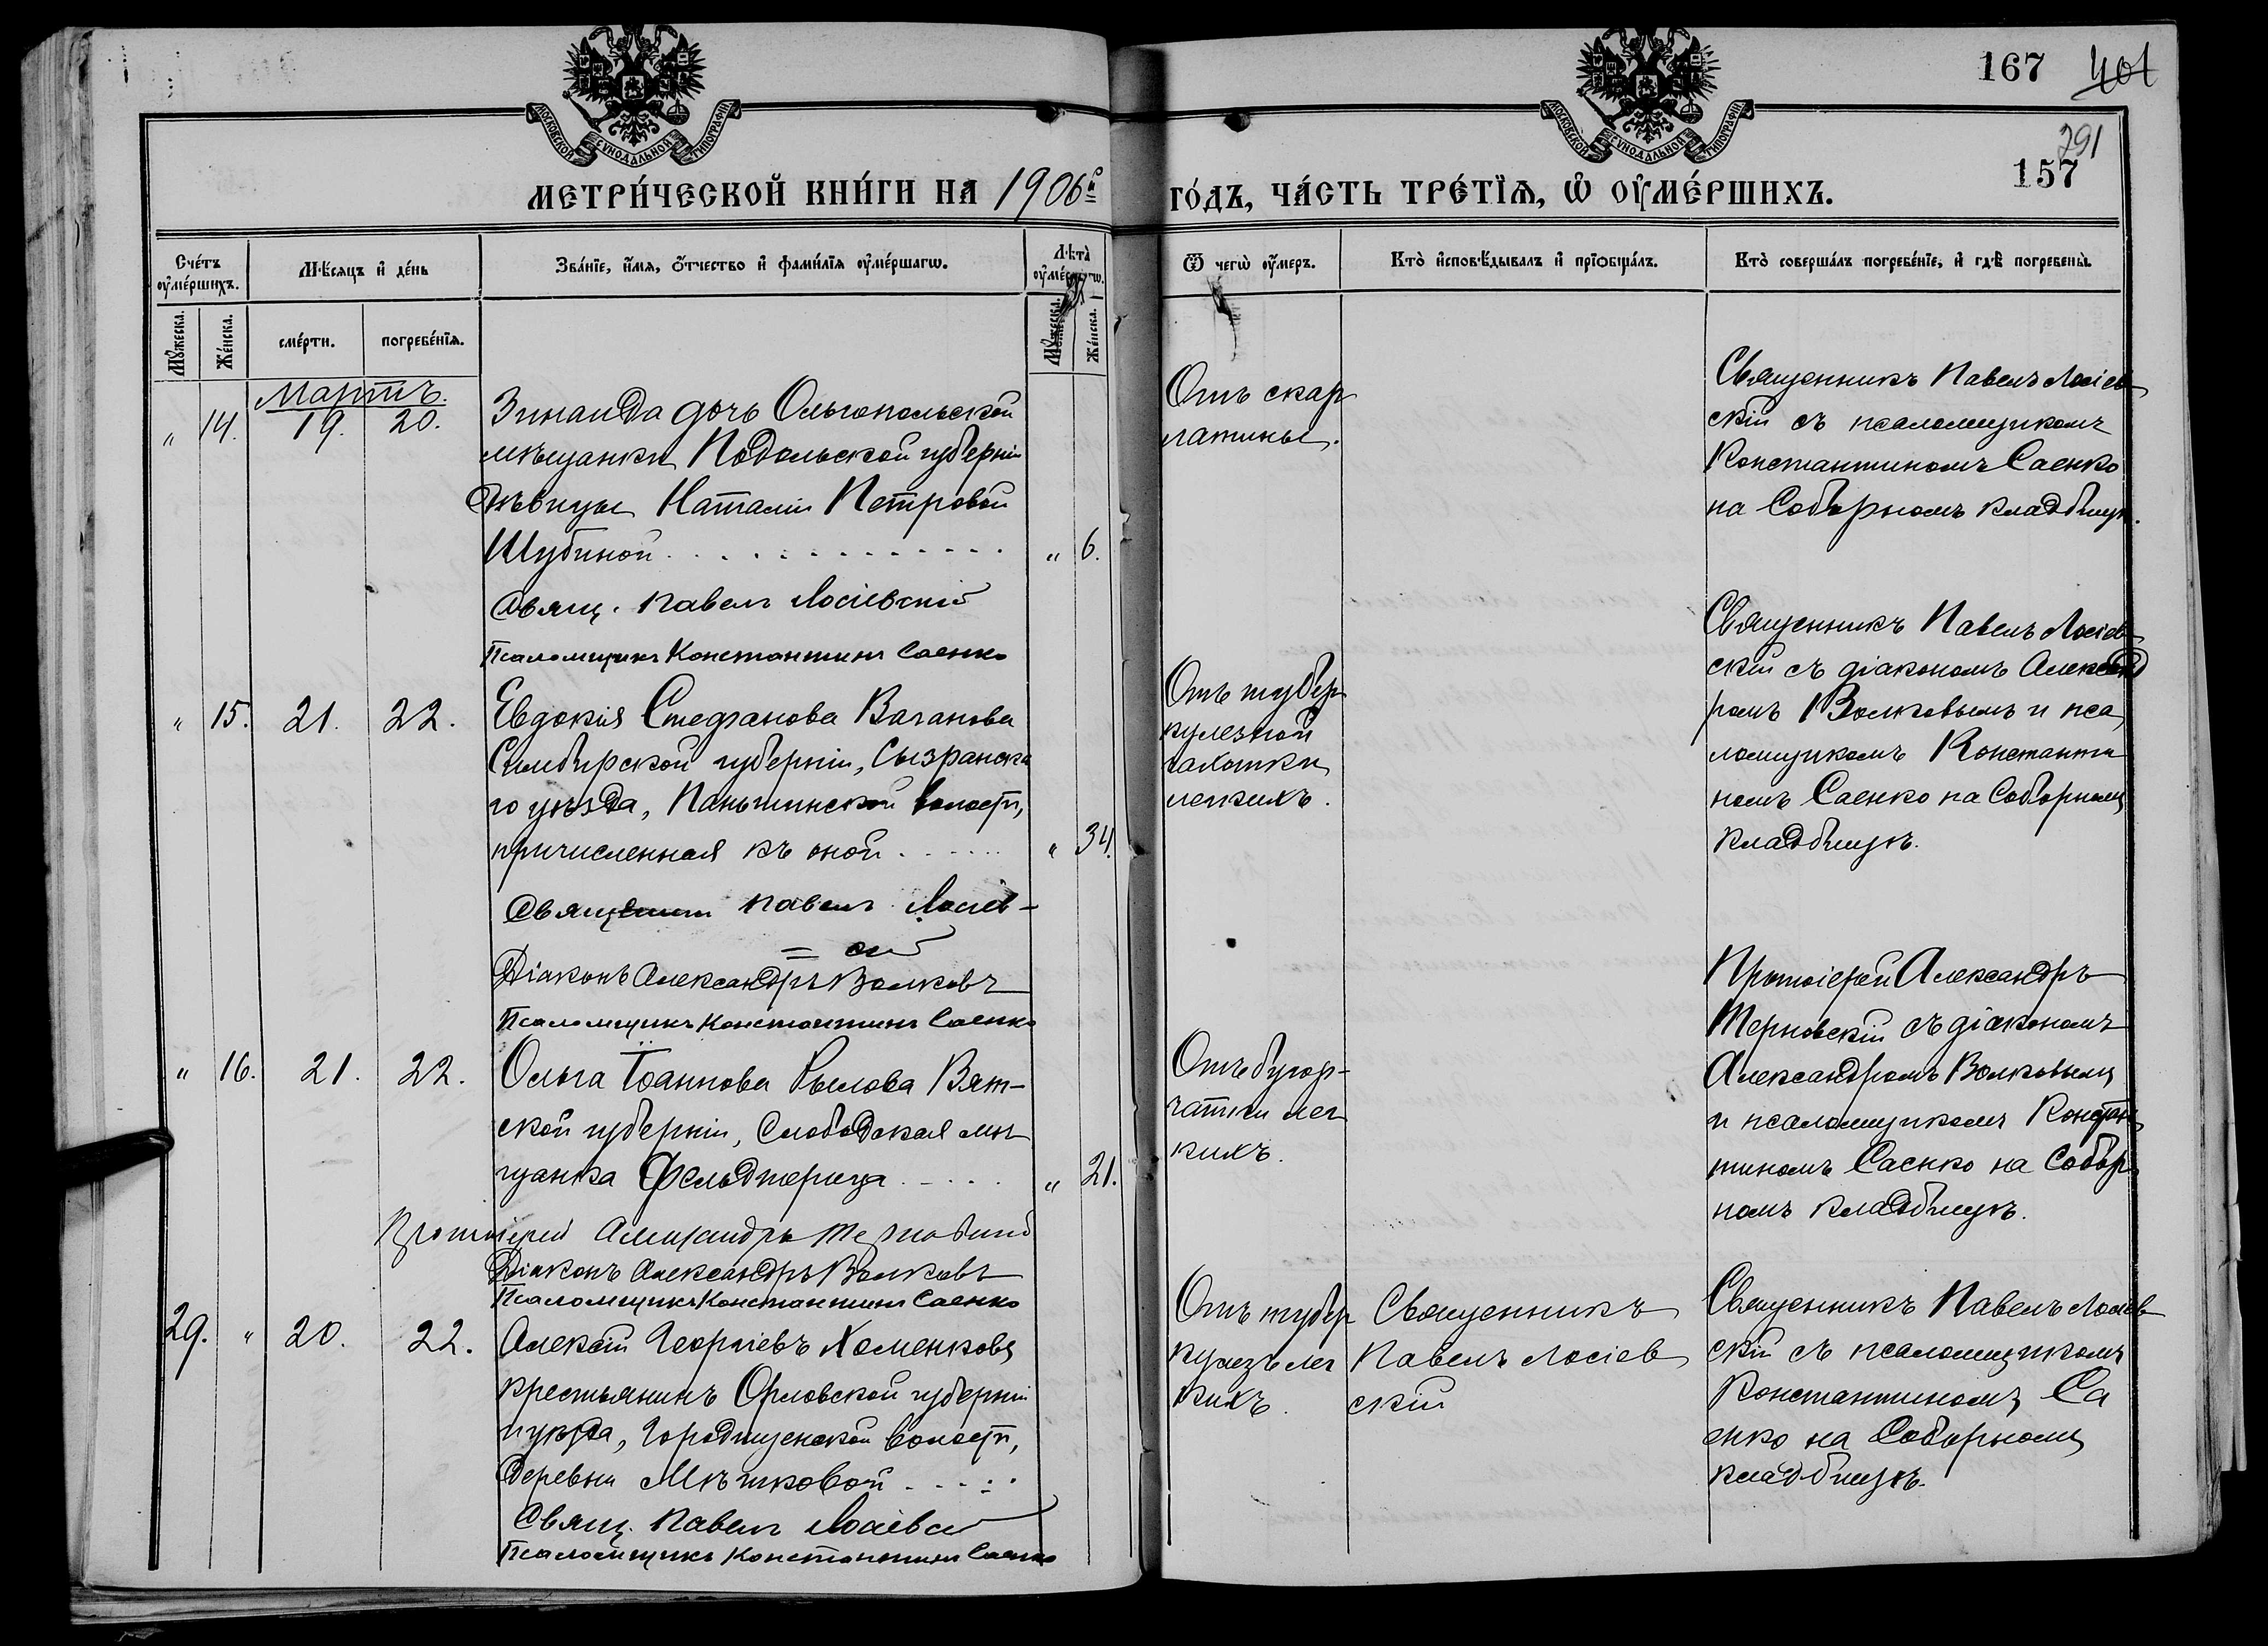 167 401
291
157
МОСКОВСКОЙ СУНОДАЛЬНОЙ ТИПОГРАФІИ
МОСКОВСКОЙ СУНОДАЛЬНОЙ ТИПОГРАФІИ
МЕТРИ́ЧЕСКОЙ КНИ́ГИ НА 1906й
ГО́ДЪ, ЧА́СТЬ ТРЕ́ТЇѦ, Ѽ ОУ҆МЕ́РШИХЪ.
Сче́тъ оу҆ме́ршихъ.
Мѣ́сяцъ и҆ де́нь
Зва́нїе, и҆́мя, ѻ҆́тчество и҆ фами́лїя оу҆ме́ршагѡ.
Лѣта̀ оу҆ме́ршагѡ.
Ѿ чегѡ̀ оу҆́меръ.
Кто̀ и҆сповѣ́дывалъ и҆ прїѡбща́лъ.
Кто̀ соверша́лъ погребе́нїе, и҆ гдѣ̀ погребены̀.
Мꙋ́жеска.
Же́нска.
сме́рти.
погребе́нїя.
Мꙋ́жеска.
Же́нска.
Мартъ.
" 14. 19. 20.
Зинаида дочь Ольгопольской
мѣщанки Подольской губерніи
дѣвицы Наталіи Петровой
Шубиной . . . . . . . . . . . . . . " 6.
Свящ. Павелъ Лосіевскій
Псаломщикъ Константинъ Саенко
Отъ скар
латины.
Священникъ Павелъ Лосіев
скій съ псаломщикомъ
Константиномъ Саенко
на Соборномъ кладбищѣ.
" 15. 21. 22.
Евдокія Стефанова Ваганова
Симбирской губерніи, Сызранска
го уѣзда, Паньшинской волости,
причисленная къ оной . . . . . . " 34.
Павелъ Лосіев-
=
Діаконъ Александръ Волковъ
Псаломщикъ Константинъ Саенко
Отъ тубер
кулезной
чахотки
легкихъ.
Священникъ Павелъ Лосіев
скій съ діакономъ Александ
ромъ Волковымъ и пса
ломщикомъ Константи
номъ Саенко на Соборномъ
кладбищѣ.
" 16. 21. 22.
Ольга Іоаннова Рылова Вят-
ской губерніи, Слободская мѣ
щанка Фельдшерица . . . . . " 21.
Протоіерей Александръ Терновскій
Діаконъ Александръ Волковъ
Псаломщикъ Константинъ Саенко
Отъ бугор-
чатки лег
кихъ.
Протоіерей Александръ
Терновскій съ діакономъ
Александромъ Волковымъ
и псаломщикомъ Констан
тиномъ Саенко на Собор
номъ кладбищѣ.
29. " 20. 22.
Алексій Георгіевъ Хоменковъ
крестьянинъ Орловской губерніи
и уѣзда, Городищенской волости,
деревни . . . . .
Свящ. Павелъ Лосіевск
Псаломщикъ Константинъ Саенко
Отъ тубер
кулезъ лег
кихъ.
Священникъ
Павелъ Лосіев
скій
Священникъ Павелъ Лосіев
скій съ псаломщикомъ
Константиномъ Са
енко на Соборномъ
кладбищѣ.